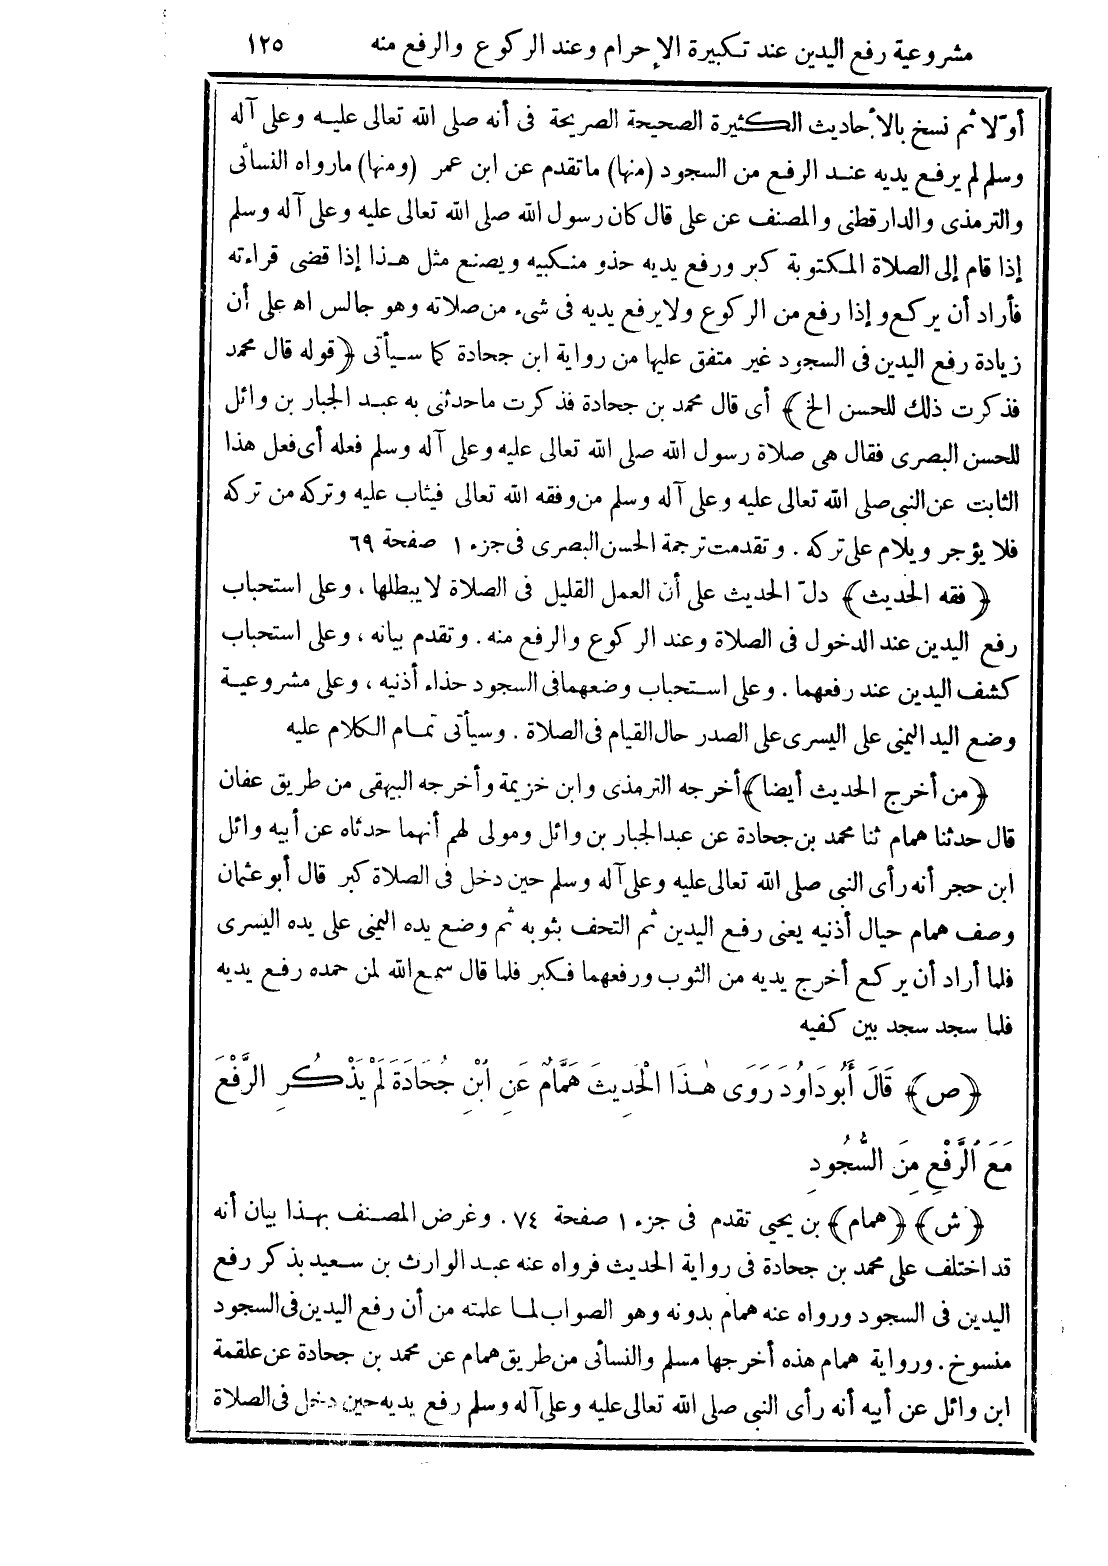 مشروعية رفع اليدين عند تكبيرة الإحرام وعند الركوع والرفع منه ١٢٥
أوّلا ثم نسخ بالأحاديث الكثيرة الصحيحة الصريحة فى أنه صلى الله تعالى عليه وعلى آله
وسلم لم يرفع يديه عند الرفع من السجود (منها) ماتقدم عن ابن عمر (ومنها) مارواه النسائى
والترمذى والدارقطنى والمصنف عن على قال كان رسول الله صلى الله تعالى عليه وعلى آله وسلم
إذا قام إلى الصلاة المكتوبة كبر ورفع يديه حذو منكبيه ويصنع مثل هذا إذا قضى قراءته
فأراد أن يركع وإذا رفع من الركوع ولايرفع يديه فى شىء من صلاته وهو جالس اه على أن
زيادة رفع اليدين فى السجود غير متفق عليها من رواية ابن جحادة كما سيأتى ﴿قوله قال محمد
فذكرت ذلك للحسن الخ﴾ أى قال محمد بن جحادة فذكرت ماحدثنى به عبد الجبار بن وائل
للحسن البصرى فقال هى صلاة رسول الله صلى الله تعالى عليه وعلى آله وسلم فعله أى فعل هذا
الثابت عن النبى صلى الله تعالى عليه وعلى آله وسلم من وفقه الله تعالى فيثاب عليه وتركه من تركه
فلا يؤجر ويلام على تركه . وتقدمت ترجمة الحسن البصرى فى جزء ١ صفحة ٦٩
﴿فقه الحديث﴾ دلّ الحديث على أن العمل القليل فى الصلاة لايبطلها ، وعلى استحباب
رفع اليدين عند الدخول فى الصلاة وعند الركوع والرفع منه . وتقدم بيانه ، وعلى استحباب
كشف اليدين عند رفعهما . وعلى استحباب وضعهمافى السجود حذاء أذنيه ، وعلى مشروعية
وضع اليد اليمنى على اليسرى على الصدر حال القيام فى الصلاة . وسيأتى تمام الكلام عليه
﴿من أخرج الحديث أيضا﴾ أخرجه الترمذى وابن خزيمة وأخرجه البيهقى من طريق عفان
قال حدثنا همام ثنا محمد بن جحادة عن عبدالجبار بن وائل ومولى لهم أنهما حدثاه عن أبيه وائل
ابن حجر أنه رأى النبى صلى الله تعالى عليه وعلى آله وسلم حين دخل فى الصلاة كبر قال أبو عثمان
وصف همام حيال أذنيه يعنى رفع اليدين ثم التحف بثوبه ثم وضع يده اليمنى على يده اليسرى
فلما أراد أن يركع أخرج يديه من الثوب ورفعهما فكبر فلما قال سمع الله لمن حمده رفع يديه
فلما سجد سجد بين كفيه
﴿ص﴾ قَالَ أَبُو دَاوُدَ رَوَى هٰذَا الْحَدِيثَ هَمَّامٌ عَنِ ابْنِ جُحَادَةَ لَمْ يَذْكُرِ الرَّفْعَ
مَعَ الرَّفْعِ مِنَ السُّجُودِ
﴿ش﴾ ﴿همام﴾ بن يحيى تقدم فى جزء ١ صفحة ٧٤ . وغرض المصنف بهذا بيان أنه
قد اختلف على محمد بن جحادة فى رواية الحديث فرواه عنه عبد الوارث بن سعيد بذكر رفع
اليدين فى السجود ورواه عنه همام بدونه وهو الصواب لما علمته من أن رفع اليدين فى السجود
منسوخ . ورواية همام هذه أخرجها مسلم والنسائى من طريق همام عن محمد بن جحادة عن علقمة
ابن وائل عن أبيه أنه رأى النبى صلى الله تعالى عليه وعلى آله وسلم رفع يديه حين دخل فى الصلاة